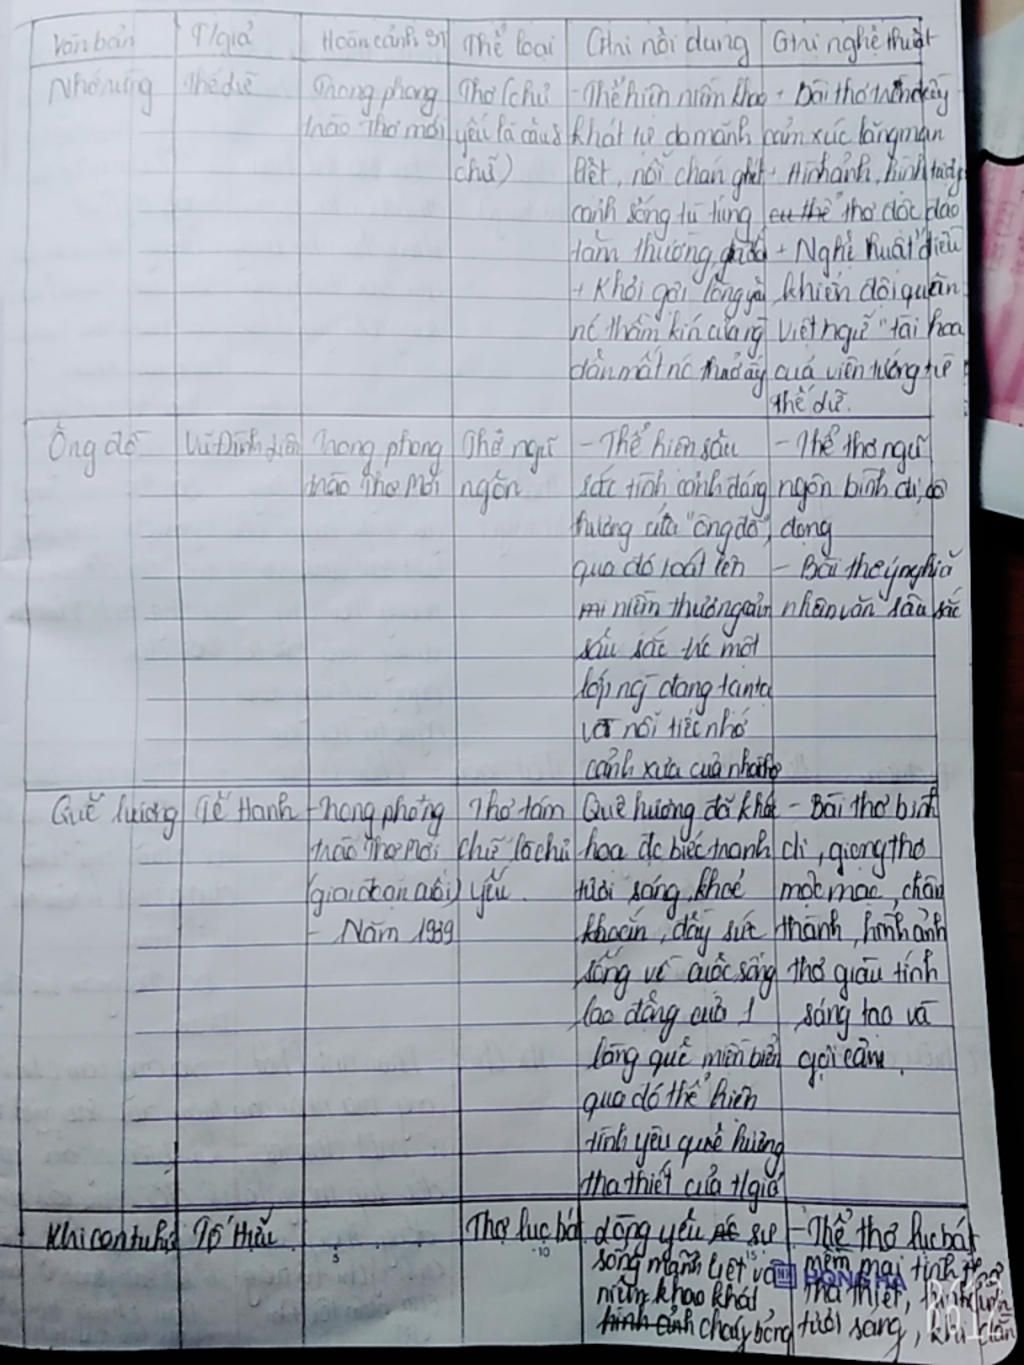 Văn bản T/giả Hoàn cảnh ST Thể loại Ghi nội dung Ghi nghệ thuật
Nhớ rừng Thế Lữ Trong phong Thơ (chủ - Thể hiện niềm khao + Bài thơ tràn đầy
trào Thơ mới yếu là câu 8 khát tự do mãnh cảm xúc lãng mạn
chữ) liệt, nỗi chán ghét + Hình ảnh, hình tượng
cảnh sống tù túng thơ độc đáo
tầm thường, + Nghệ thuật điều
+ Khơi gợi lòng yêu khiển đội quân
nc thầm kín của ng Việt ngữ "tài hoa
dân mất nc thuở ấy của viên tướng
Thế Lữ.
Ông đồ Vũ Đình Liên Trong phong Thơ ngũ - Thể hiện sâu - Thể thơ ngũ
trào Thơ Mới ngôn sắc tình cảnh đáng ngôn bình dị, cô
thương của "ông đồ", đọng
qua đó toát lên - Bài thơ ý nghĩa
niềm thương cảm nhân văn sâu sắc
sâu sắc một
lớp ng đang tàn tạ
và nỗi tiếc nhớ
cảnh xưa của nhà thơ
Quê hương Tế Hanh - Trong phong Thơ tám Quê hương đã khắc - Bài thơ bình
trào Thơ Mới chữ là chủ họa đc biếc tranh dị, giọng thơ
(giai đoạn cuối) yếu. tươi sáng, khoẻ mộc mạc, chân
- Năm 1939 khoắn, đầy sức thành, hình ảnh
sống về cuộc sống thơ giàu tính
lao động của 1 sáng tạo và
làng quê miền biển gợi cảm.
qua đó thể hiện
tình yêu quê hương
tha thiết của t/giả
Khi con tu hú Tố Hữu Thơ lục bát dòng yếu sự - Thể thơ lục bát
sống mãnh liệt và mềm mại tình
niềm khao khát tha thiết,
hình ảnh cháy bỏng tươi sáng, khi
5 10 15
HONG HA